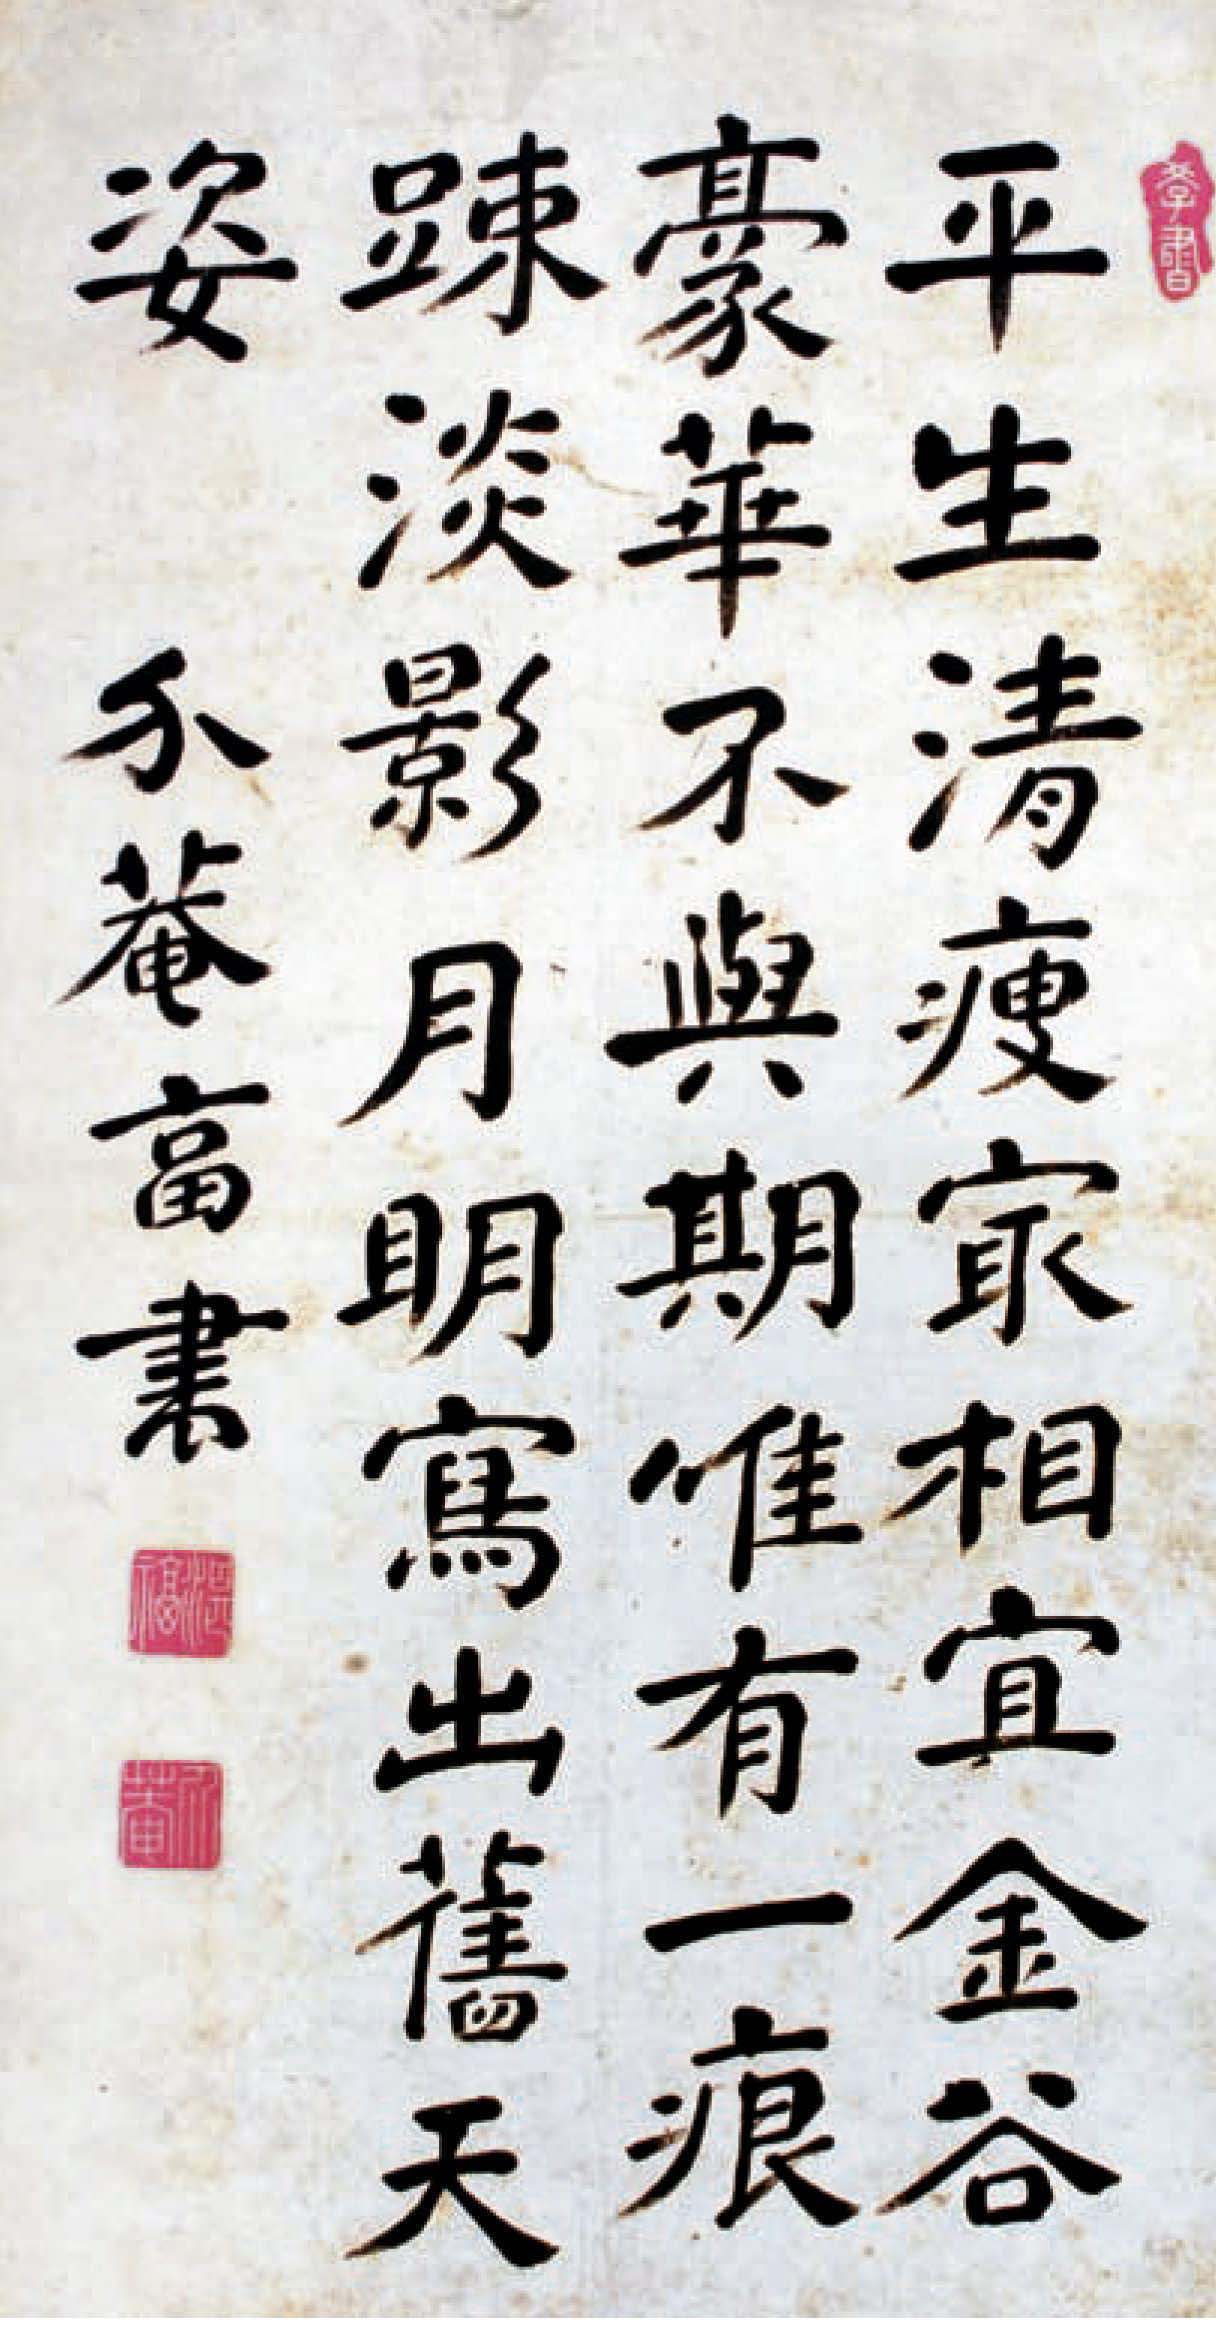 平生清瘦冣相宜金谷
豪華不與期唯有一痕
踈淡影月明寫出舊天
姿
介菴富書